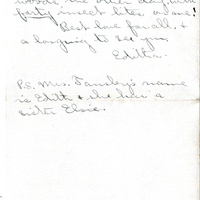 woods the other day, with
party insect bites, on me!
Best love for all, &
a longing to see you,
Edith.
P.S. Mrs. Tansley's name
is Edith & she has a
sister Elsie.